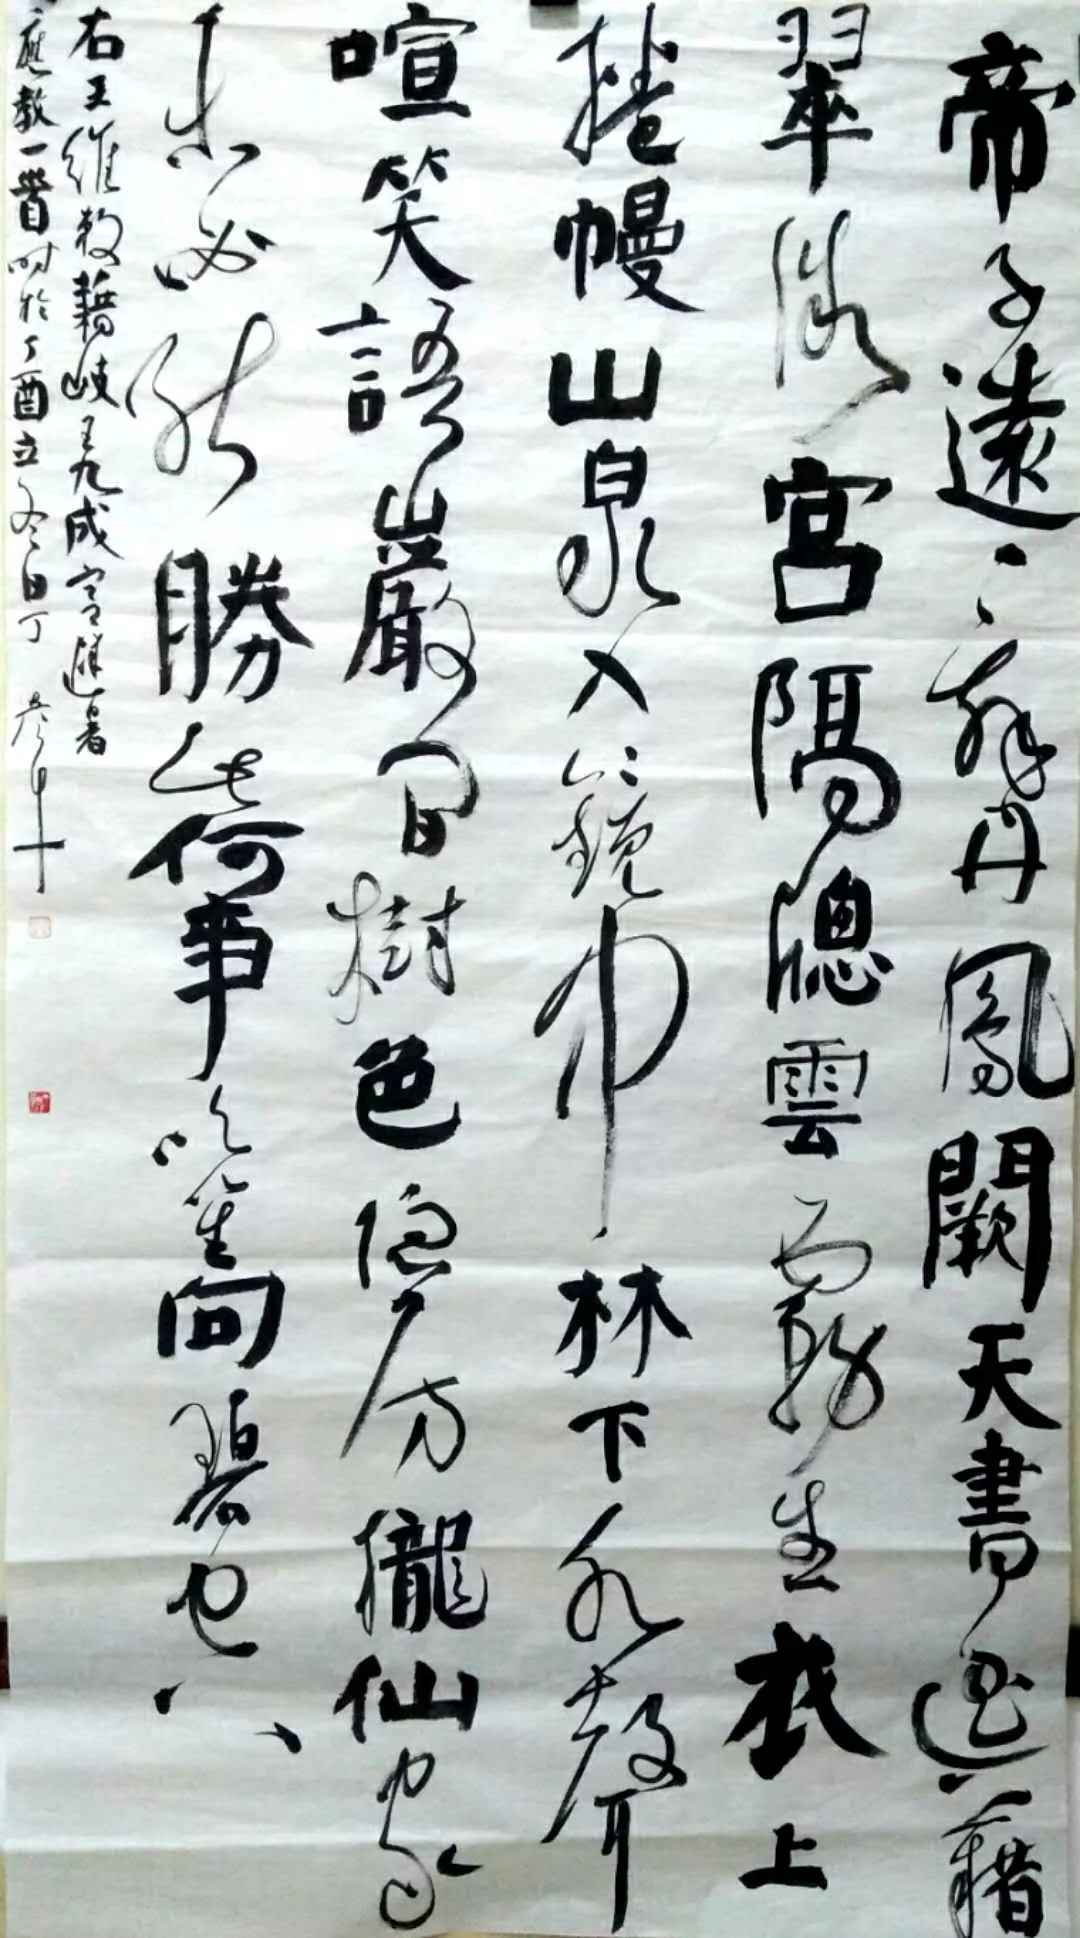 帝子遠〻辭丹鳳闕天書遥藉
翠微宮隔牕雲霧生衣上
捲幔山泉入鏡中林下水聲
喧笑語巖間樹色隱房櫳仙家
未必能勝此何事吹笙向碧空
右王維敕藉岐王九成宮避暑
應教一首时於丁酉立冬日丁